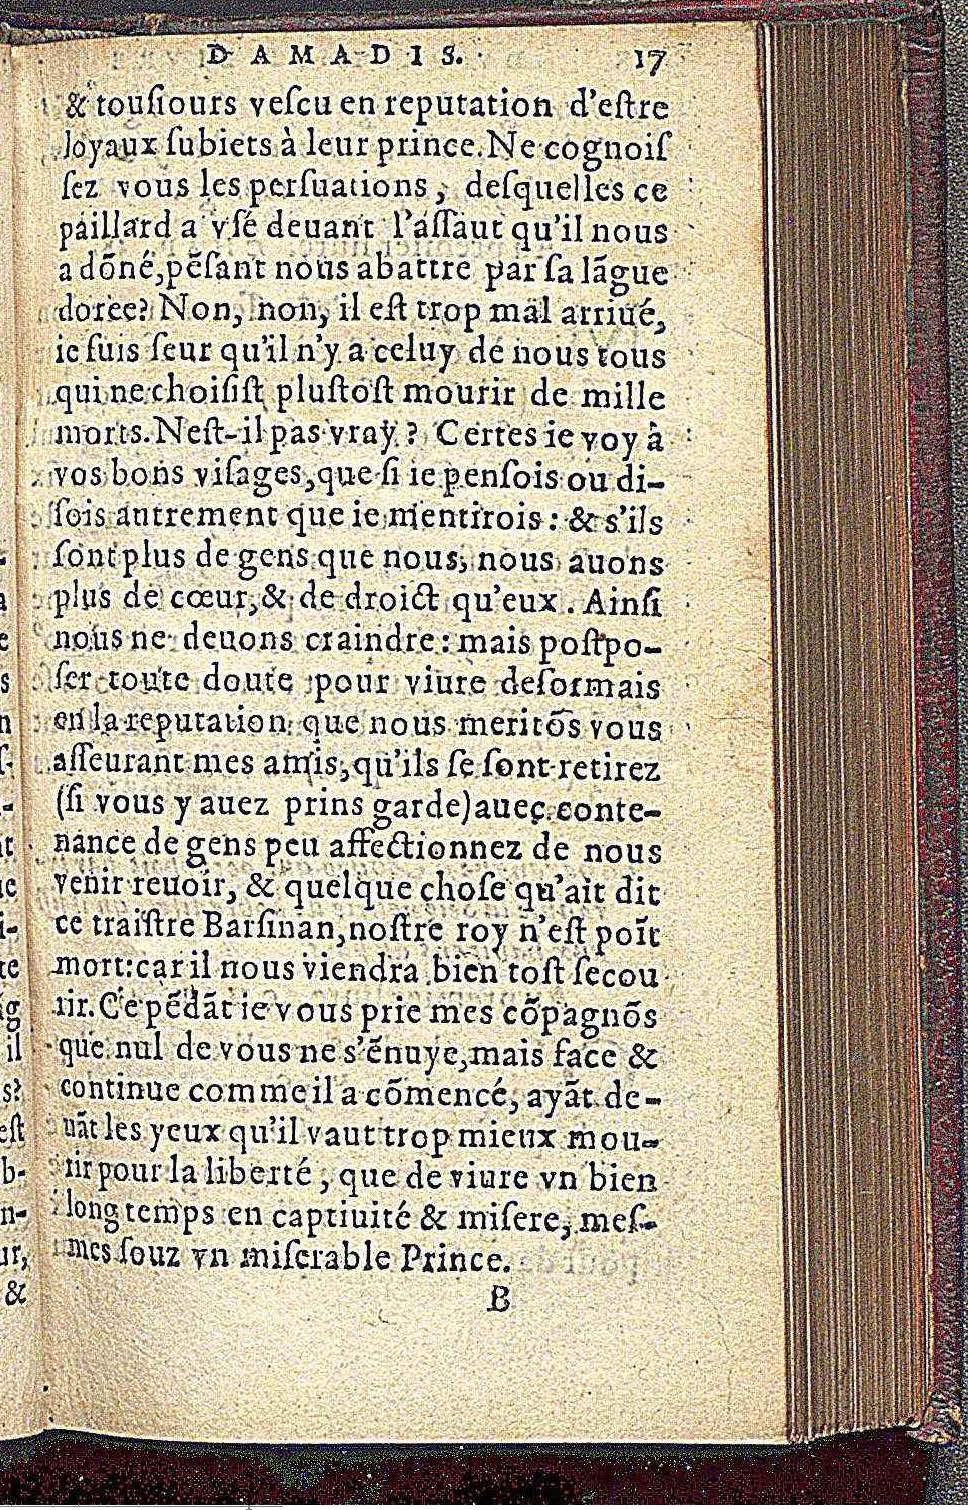 D'AMADIS. 17
& touſiours veſcu en reputation d'eſtre
loyaux ſubiets à leur prince. Ne cognoiſ
ſez vous les perſuations, deſquelles ce
paillard a vſé deuant l'aſſaut qu'il nous
a dōné, pēſant nous abattre par ſa lāgue
doree? Non, non, il eſt trop mal arriué,
ie ſuis ſeur qu'il n'y a celuy de nous tous
qui ne choiſiſt pluſtoſt mourir de mille
morts. Neſt-il pas vray? Certes ie voy à
vos bons viſages, que ſi ie penſois ou di-
ſois autrement que ie mentirois: & s'ils
ſont plus de gens que nous, nous auons
plus de cœur, & de droict qu'eux. Ainſi
nous ne deuons craindre: mais poſtpo-
ſer toute doute pour viure deſormais
en la reputation que nous meritōs vous
aſſeurant mes amis, qu'ils ſe ſont retirez
(ſi vous y auez prins garde) auec conte-
nance de gens peu affectionnez de nous
venir reuoir, & quelque choſe qu'ait dit
ce traiſtre Barſinan, noſtre roy n'eſt poīt
mort: car il nous viendra bien toſt ſecou
rir. Ce pēdāt ie vous prie mes cōpagnōs
que nul de vous ne s'ēnuye, mais face &
continue comme il a cōmencé, ayāt de-
uāt les yeux qu'il vaut trop mieux mou-
rir pour la liberté, que de viure vn bien
long temps en captiuité & miſere, meſ-
mes ſouz vn miſerable Prince.
B